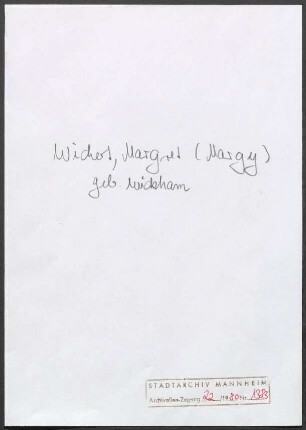 Wichert, Margret (Margy)
geb. Wickham
STADTARCHIV MANNHEIM
Archivalien-Zugang 22 /1980 Nr. 1383